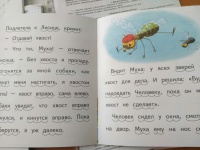 Подлетела к Лисице, кричит:
— Отдавай хвост!
— Что ты, Муха! — отвечает
— Без хвоста я пропаду.
за мной собаки, как
меня настигать, я
хвост вправо, сама влево.
увидят, что хвост вправо
и кинутся вправо. Пока
а уж далеко.
Видит Муха: у всех зверей
хвост для дела. И решила: «Буду
надоедать Человеку, пока он мне
хвост не сделает».
Человек сидел у окна, смотрел
на двор. Муха ему на нос